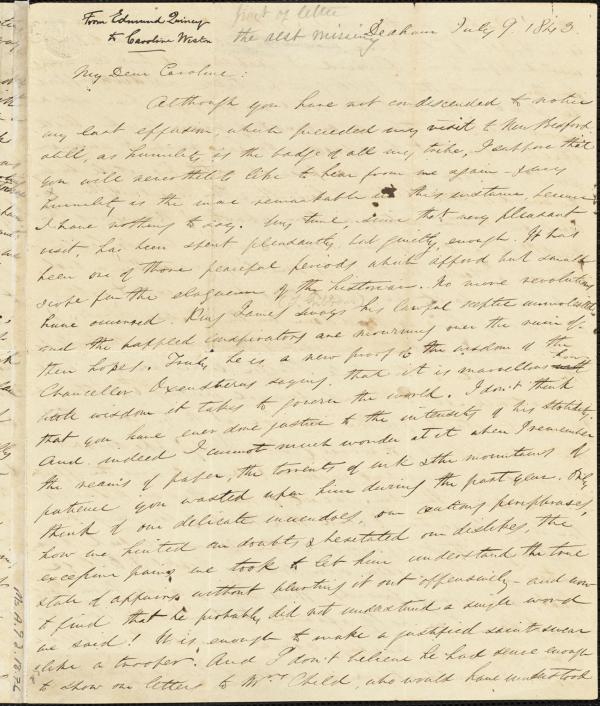 From Edmund Quincy
to Caroline Weston
part of letter
the rest missing
Dedham July 9. 1843.
My Dear Caroline:
Although you have not condescended to notice
my last effusion, which preceded my visit to New Bedford,
still, as humility is the badge of all my tribe, I suppose that
you will nevertheless like to hear from me again – & my
humility is the more remarkable in this instance because
I have nothing to say. My time, since that very pleasant
visit, has been spent pleasantly, but quietly enough. It has
been one of those peaceful periods which afford but small
scope for the eloquence of the historian. No more revolutions
have occurred. King James sways his lawful sceptre unmolested,
and the baffled conspirators are mourning over the ruin of
their hopes. Truly he is a new proof of the wisdom of the
Chancellor Oxenstierns saying, that it is marvellous how
little wisdom it takes to govern the world. I don't think
that you have ever done justice to the intensity of his stolidity.
And indeed I cannot much wonder at it when I remember
the reams of paper, the torrents of ink & the mountains of
patience you wasted upon him during the past year. Only
think of our delicate innuendoes, our cautious periphrases,
how we hinted our doubts & hesitated our dislikes, the
excessive pains we took to let him understand the true
state of affairs without blurting it out offensively – and now
to find that he probably did not understand a single word
we said! It is enough to make a justified saint swear
like a trooper. And I don't believe he had sense enough
to show our letters to Mrs. Child, who would have understood
Ms. A.9.2.18.72